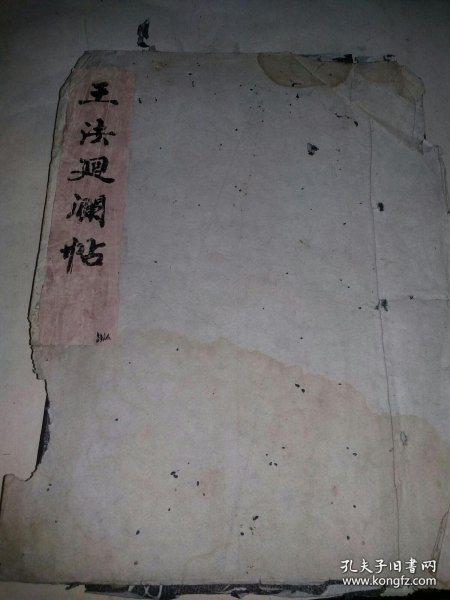 王法迴瀾帖
孔夫子旧书网
www.kongfz.com